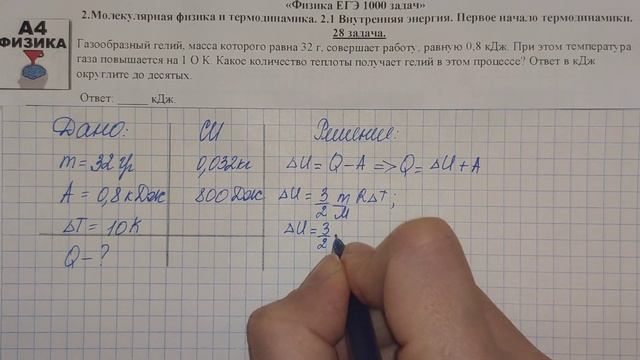 «Физика ЕГЭ 1000 задач»
2.Молекулярная физика и термодинамика. 2.1 Внутренняя энергия. Первое начало термодинамики.
28 задача.
А4
ФИЗИКА
Газообразный гелий, масса которого равна 32 г, совершает работу, равную 0,8 кДж. При этом температура
газа повышается на 1 О К. Какое количество теплоты получает гелий в этом процессе? Ответ в кДж
округлите до десятых.
Ответ: ______ кДж.
Дано: СИ Решение:
m = 32 гр 0,032 кг ΔU = Q – A => Q = ΔU + A
A = 0,8 кДж 800 Дж ΔU = 3/2 m/M RΔT;
ΔT = 10 К ΔU = 3/2
Q – ?